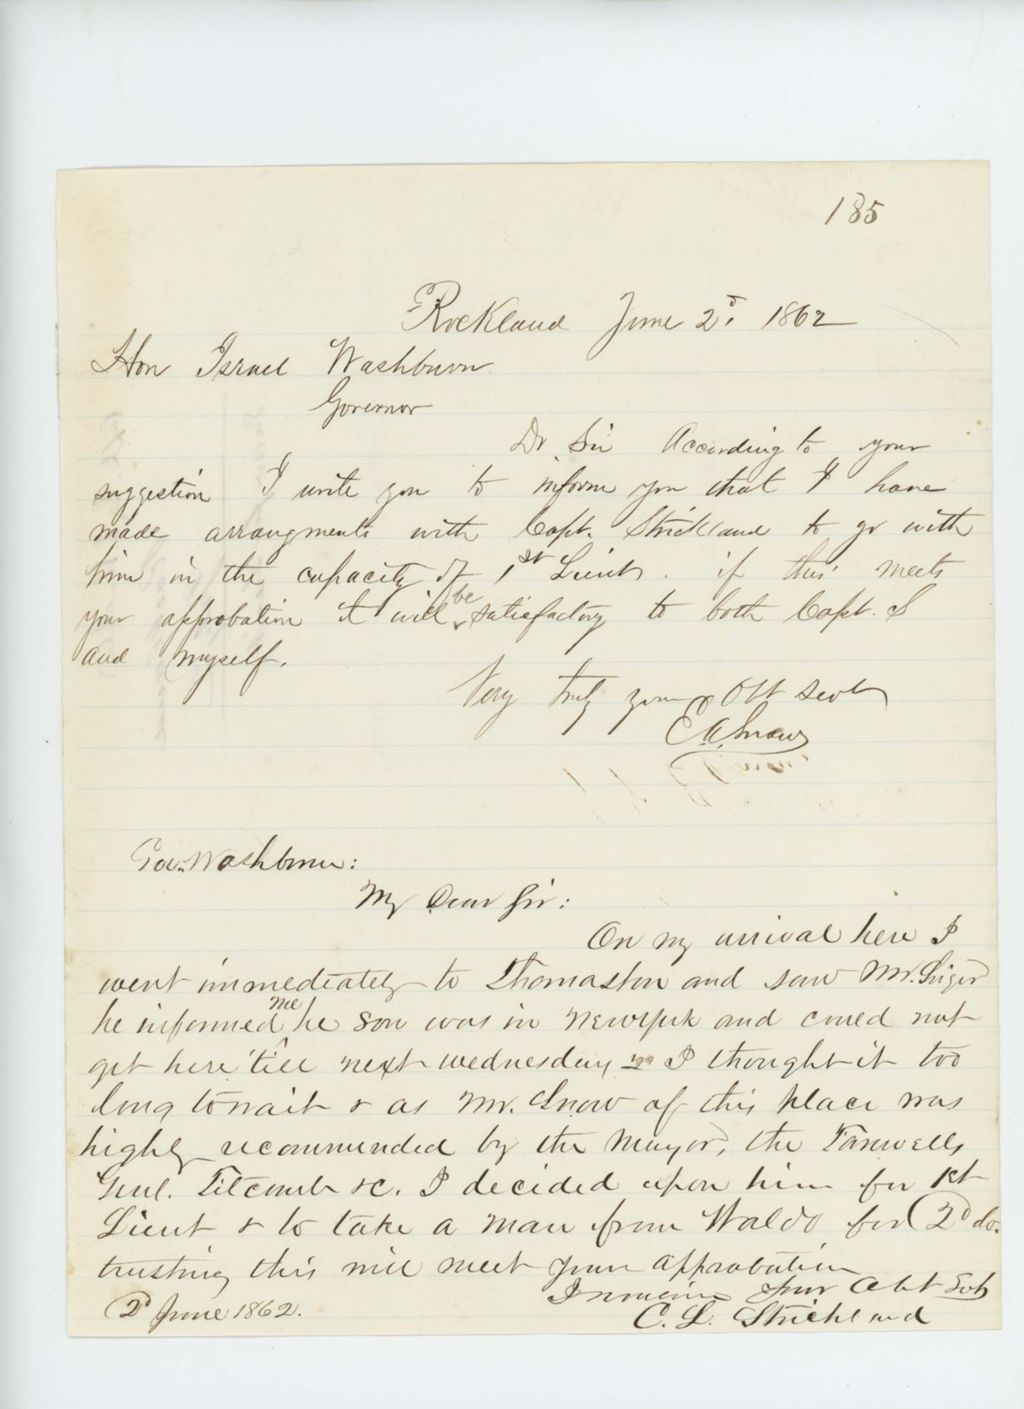 185
Rockland June 2d. 1862
Hon Israel Washburn
Governor
Dr Sir According to your
suggestion I write you to inform you that I have
made arrangments with Capt. Strickland to go with
him in the capacity of 1st Lieut. if this meets
your approbation it will be satisfactory to both Capt. S
and myself.
Very truly your Obt Servt
E A Snow
Gov. Washburn:
My Dear Sir:
On my arrival here I
went immediately to Thomaston and saw Mr.
he informed me he son was in Newyork and could not
get here 'till next wednesday I thought it too
long to wait & as Mr. Snow of this place was
highly recommended by the Mayor, the Farwells
Genl. Titcomb &c. I decided upon him for 1st
Lieut & to take a man from Waldo for 2d do.
trusting this will meet your approbation
I remain Your Obt Svt
2d June 1862. C. L. Strickland